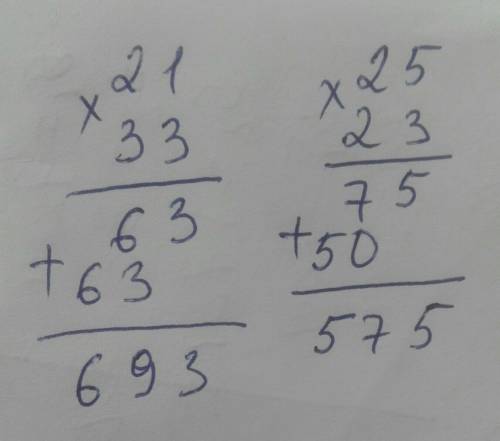 × 21
33
63
+ 63
693
× 25
23
75
+ 50
575